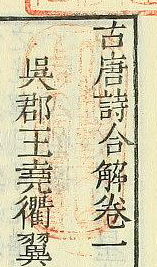 古唐詩合解卷一
吳郡王堯衢翼